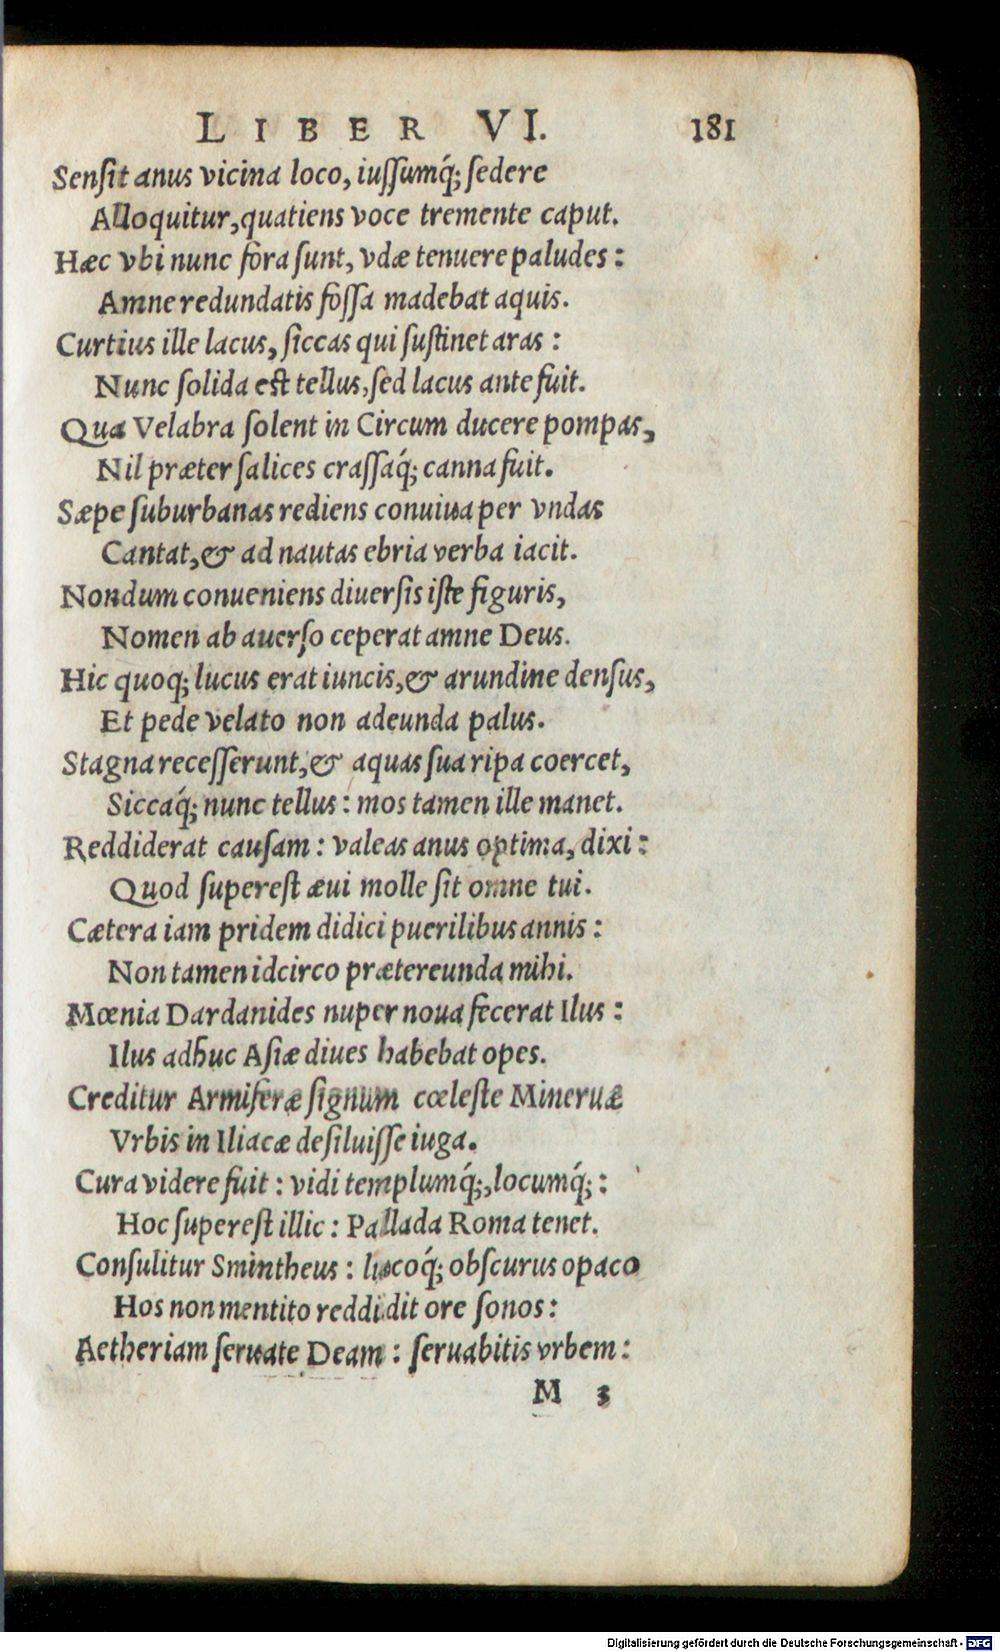 LIBER VI. 181
Senſit anus vicina loco, iuſſumq́; ſedere
Alloquitur, quatiens voce tremente caput.
Hæc vbi nunc fora ſunt, vdæ tenuere paludes:
Amne redundatis foſſa madebat aquis.
Curtius ille lacus, ſiccas qui ſuſtinet aras:
Nunc ſolida est tellus, ſed lacus ante fuit.
Qua Velabra ſolent in Circum ducere pompas,
Nil præter ſalices craſſaq́; canna fuit.
Sæpe ſuburbanas rediens conuiua per vndas
Cantat, & ad nautas ebria verba iacit.
Nondum conueniens diuerſis iſte figuris,
Nomen ab auerſo ceperat amne Deus.
Hic quoq; lucus erat iuncis, & arundine denſus,
Et pede velato non adeunda palus.
Stagna receſſerunt, & aquas ſua ripa coercet,
Siccaq́; nunc tellus: mos tamen ille manet.
Reddiderat cauſam: valeas anus optima, dixi:
Quod ſupereſt æui molle ſit omne tui.
Cætera iam pridem didici puerilibus annis:
Non tamen idcirco prætereunda mihi.
Mœnia Dardanides nuper noua fecerat Ilus:
Ilus adhuc Aſiæ diues habebat opes.
Creditur Armiferæ ſignum cœleſte Mineruæ
Vrbis in Iliacæ deſiluiſſe iuga.
Cura videre fuit: vidi templumq́;, locumq́;:
Hoc ſupereſt illic: Pallada Roma tenet.
Conſulitur Smintheus: lucoq́; obſcurus opaco
Hos non mentito reddidit ore ſonos:
Aetheriam ſeruate Deam: ſeruabitis vrbem:
M 3
Digitalisierung gefördert durch die Deutsche Forschungsgemeinschaft - DFG